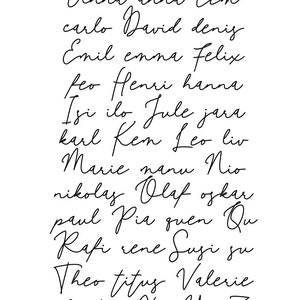 carlo David denis
Emil emma Felix
feo Henri hanna
Isi ilo Jule jara
karl Kem Leo liv
Marie manu Nio
nikolas Olaf oskar
paul Pia quen Qu
Rafi rene Susi su
Theo titus Valerie